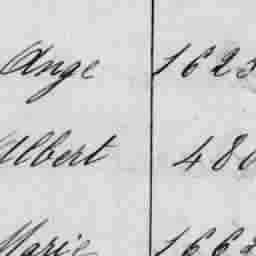 Ange 1625
Albert 480
Marie 1662